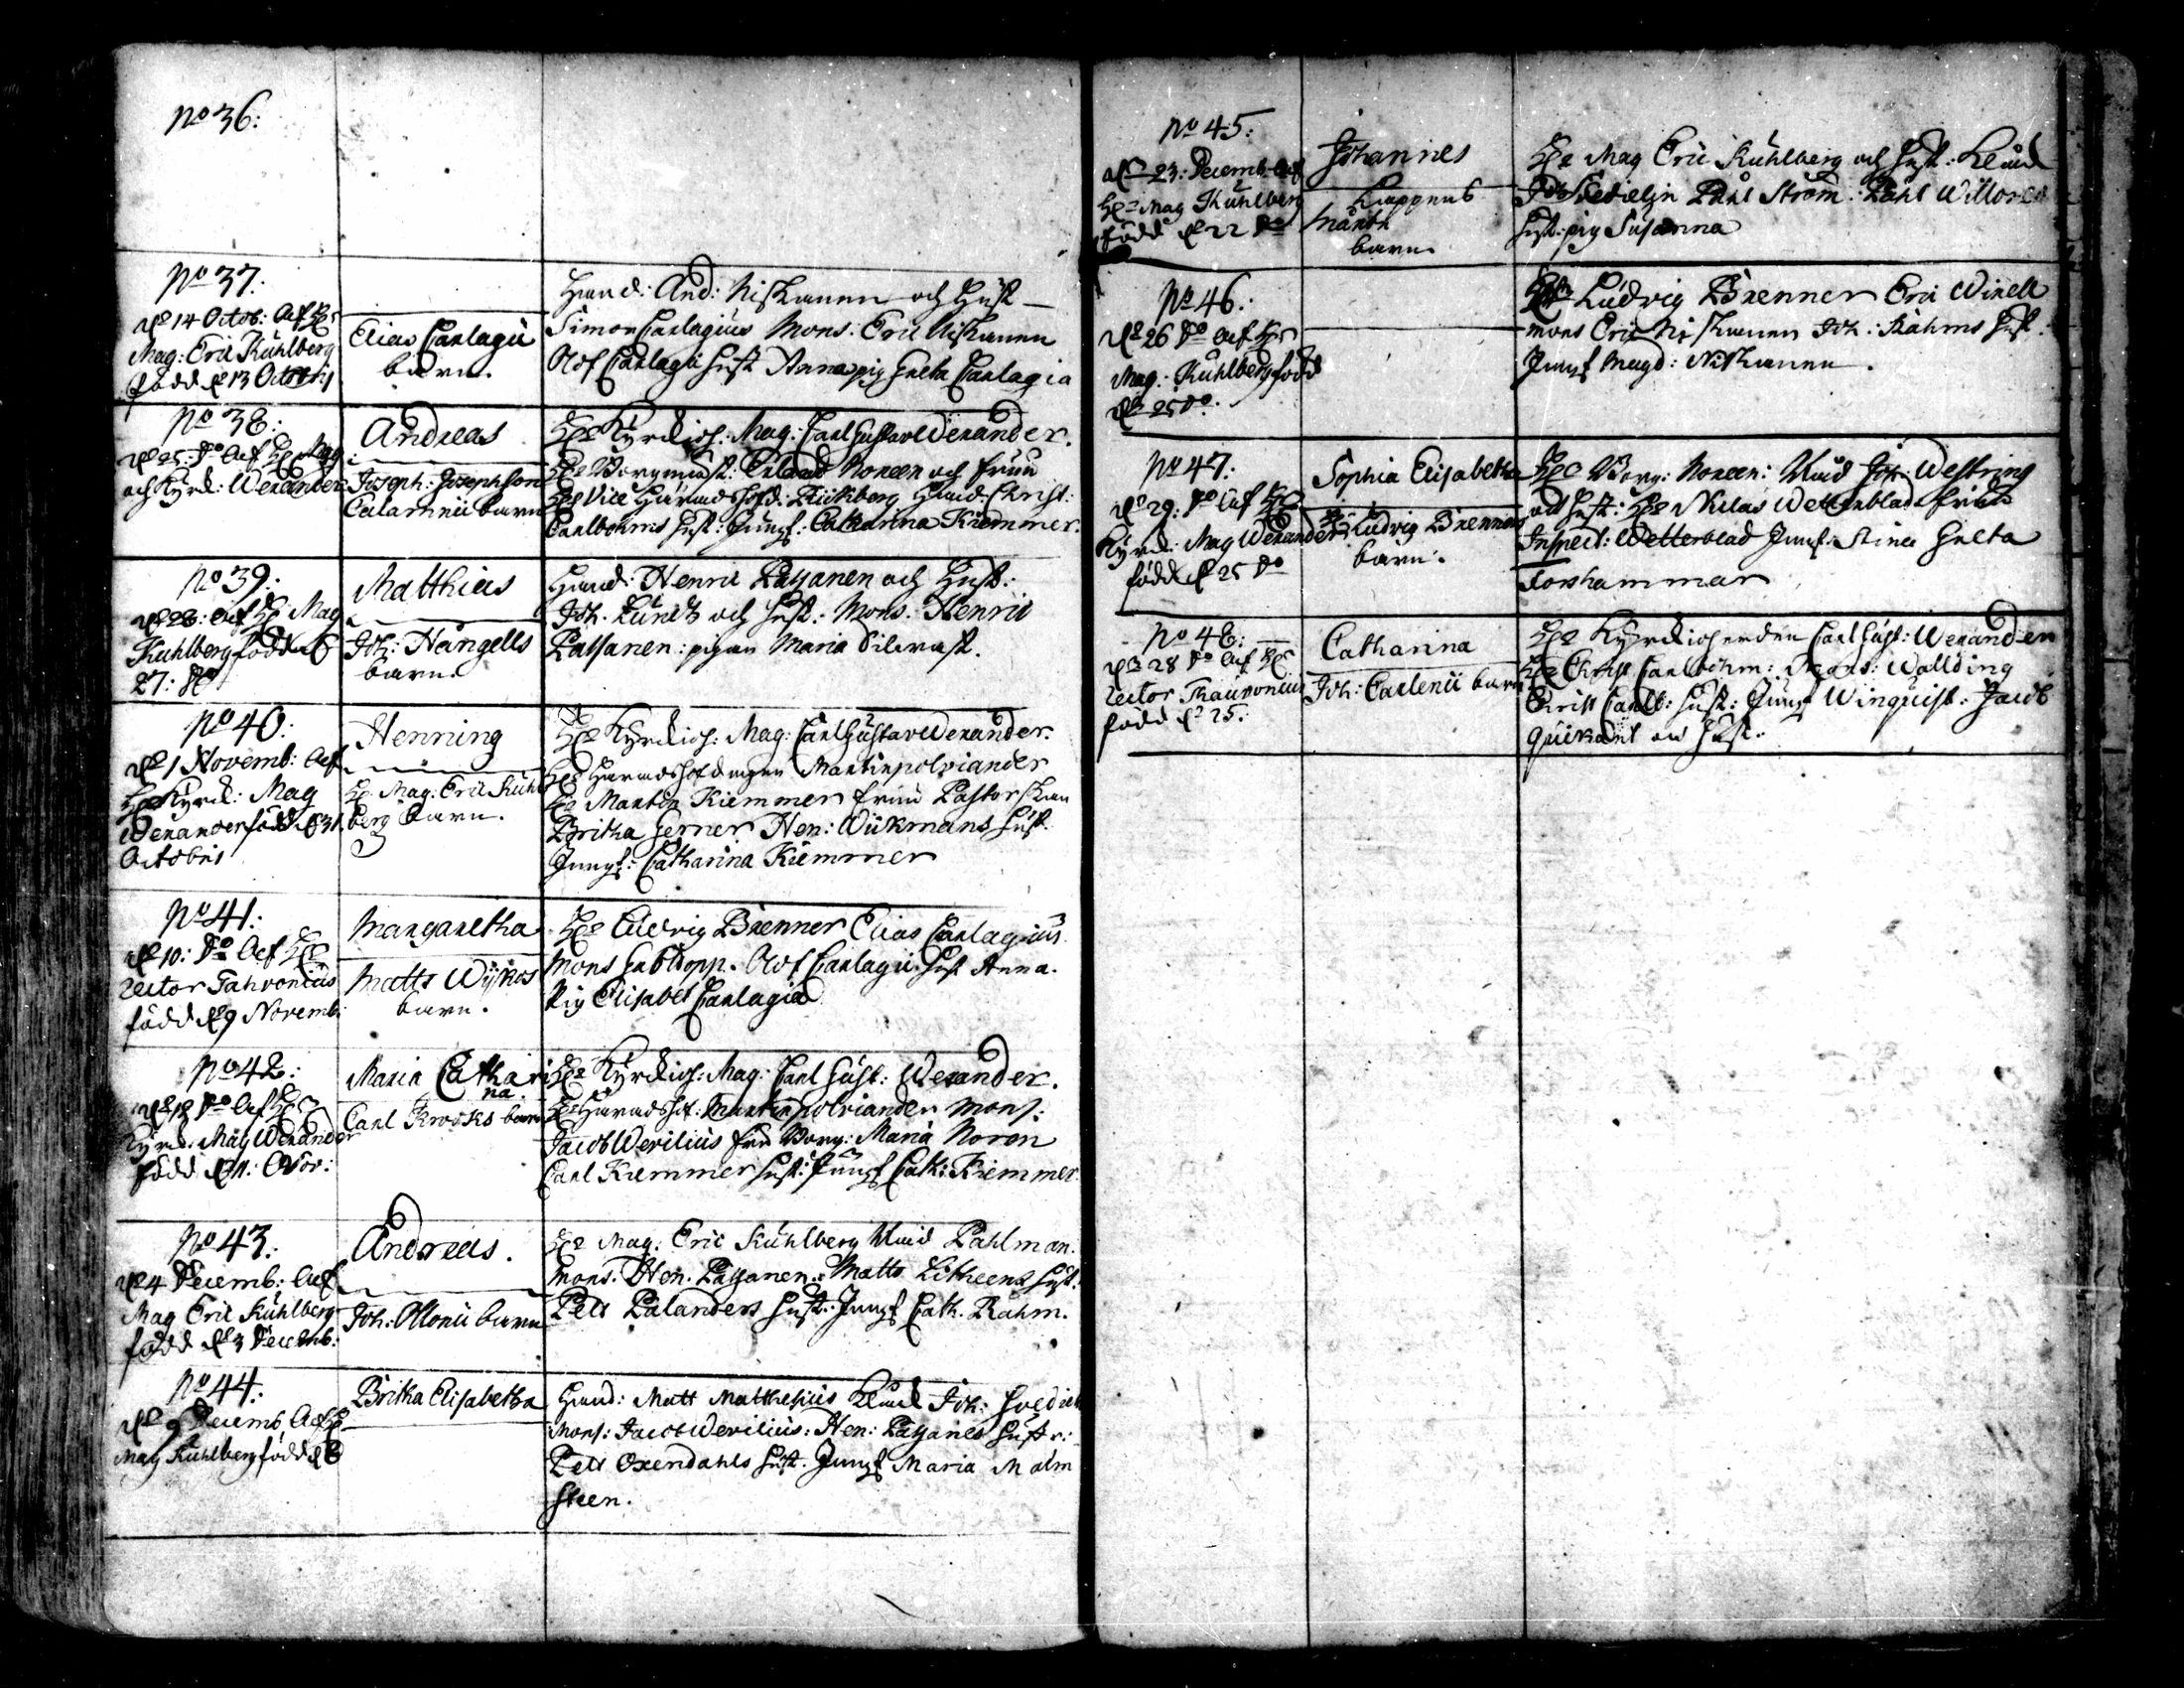 No 36:
No 37:
d 14 Octob: Aff H
Mag: Eric Kuhlberg
född d 13 Octobris
Eliae Carlagii
barn.
Hand: And: Niskanen och Hust
Simon Carlagius Mons. Eric Niskanen
Olof Carlagii Hust Anna pig Greta Carlagia
No 38:
d 25: do Aff H Mag
och Kyrck: Wexander
Andreas
Joseph: Josephson
Calamnii barn
He Kyrckioh: Mag: Carl Gustav Wexander.
He Borgmäst: Erland Noreen och fruu
He Vice Häradshöfd: Hand: Christ:
Carlbohms Hust: Jungf: Catharina Kiemmer.
No 39:
d 28: Aff H Mag
Kuhlberg född d
27: do
Matthias
Joh: Hångells
barn.
Hand: Henric Passanen och Hust:
Joh. Lundt och Hust: Mons. Henric
Passanen: pigan Maria Silvast.
No 40:
d 1 Novemb: Aff
He Kyrck: Mag
Wexander född d 31.
Octobris
Henning
H. Mag. Eric Kuhl
berg barn.
He Kyrckioh: Mag: Carl Gustav Wexander.
He Häradshöfdingen Martin polviander
He Martin Kiemmer fruu Pastorskan
Britha Gerner Hen: Wiikmans Hust.
Jungf: Catharina Kiemmer
No 41:
d 10: do Aff He
rector Tahvonius
född d 9 Novemb:
Margaretha
Matts Wijkos
barn.
He Ludvig Brenner Elias Carlagius
Mons Olof Carlagii Hust Anna.
Pig Elisabet Carlagia
No 42:
d 18 do Aff H
Kyrck: Mag Wexander
född d 11: Nov:
Maria Cathari
na.
Carl Krooks barn
He Kyrckioh: Mag: Carl Gust: Wexander.
He Häradshöf: Martin polviander Mons:
Jacob Wevilius fru Borg: Maria Noren
Carl Kiemmer Hust: Jungf Cath: Kiemmer.
No 43:
d 4 Decemb: Aff
Mag Eric Kuhlberg
född d 3 Decemb:
Andreas.
Joh: Ollonii barn
He Mag: Eric Kuhlberg Pahlman.
Mons. Hen. Passanen. Matts Litheens Hust.
Pett Palanders Hust: Jungf Cath. Rahm.
No 44:
d 9 Decemb Aff H
Mag Kuhlberg född d 8
Britha Elisabetha
Hand: Matt Matthesius Joh:
Mons: Jacob Wevilius: Hen: Passanes Hustr:
Pett Oxendahls Hust. Jungf Maria Malm
steen.
No 45:
d 23: Decemb Aff
He Mag Kuhlberg
född d 22 do
Johannes
barn
He Mag Eric Kuhlberg och Hust:
Påhl Ström: Påhl
Hust: pig Susanna
No 46:
d 26 do Aff He
Mag: Kuhlberg född
d 25 do.
Ludvig Brenner Eric Winell
mons Eric Niskanen Joh: Rahms Hust:
Jungf Magd: Niskanen.
No 47:
d 29: do Aff He
Kyrck: Mag Wexander
född d 25 do
Sophia Elisabetha
H Ludvig Brenners
barn:
He Borg: Noreen: Joh: Westring
och Hust: He Niclas Wetterblad fruu
Inspect: Wetterblad Jungf: Stina Greta
Forshammar
No 48:
d 28 do Aff He
rector Thauvonius
född d 25.
Catharina
Joh: Carlenii barn
He Kyrckioherden Carl Gust: Wexander
He Christ Carlbohm: Mons: Wallding
Christ Carlb: Hust: Jungf Winquist: Jacob